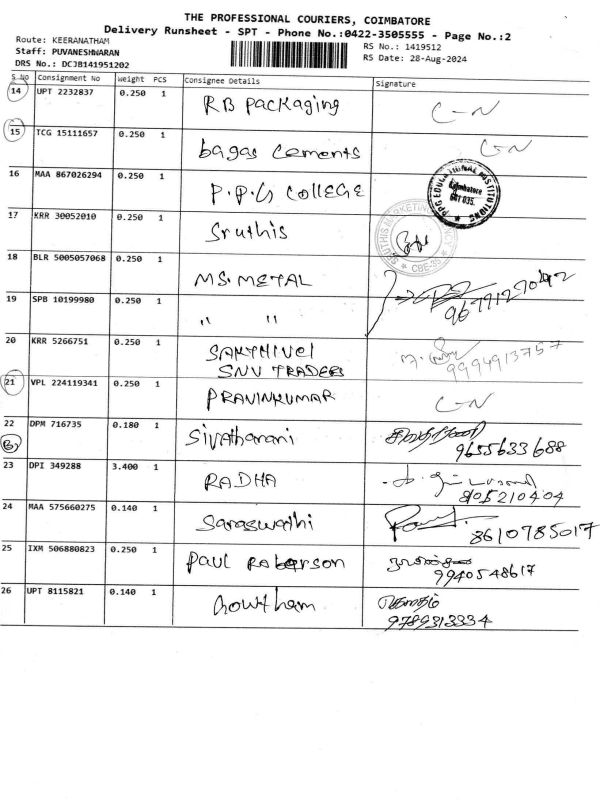 THE PROFESSIONAL COURIERS, COIMBATORE
Delivery Runsheet - SPT - Phone No.:0422-3505555 - Page No.:2
Route: KEERANATHAM
RS No.: 1419512
Staff: PUVANESHWARAN
RS Date: 28-Aug-2024
DRS No.: DCJB141951202
S No Consignment No Weight PCS Consignee Details Signature
14 UPT 2232837 0.250 1 RB Packaging C-N
15 TCG 15111657 0.250 1 bagas cements C-N
16 MAA 867026294 0.250 1 P.P.G COLLEGE
PPG EDUCATIONAL INSTITUTIONS
Coimbatore
641 035.
17 KRR 30052010 0.250 1 Sruthis
CBE-35
18 BLR 5005057068 0.250 1 MS. METAL
19 SPB 10199980 0.250 1 " "
20 KRR 5266751 0.250 1 SAKTHIVEl
SNV TRADERS
9994913757
21 VPL 224119341 0.250 1 PRAVINKUMAR C-N
22 DPM 716735 0.180 1 Sivatharani
9655633688
23 DPI 349288 3.400 1 RADHA
24 MAA 575660275 0.140 1 Saraswathi
8610785017
25 IXM 506880823 0.250 1 Paul Roberson
9940548617
26 UPT 8115821 0.140 1 Gowtham கௌதம்
9789313334